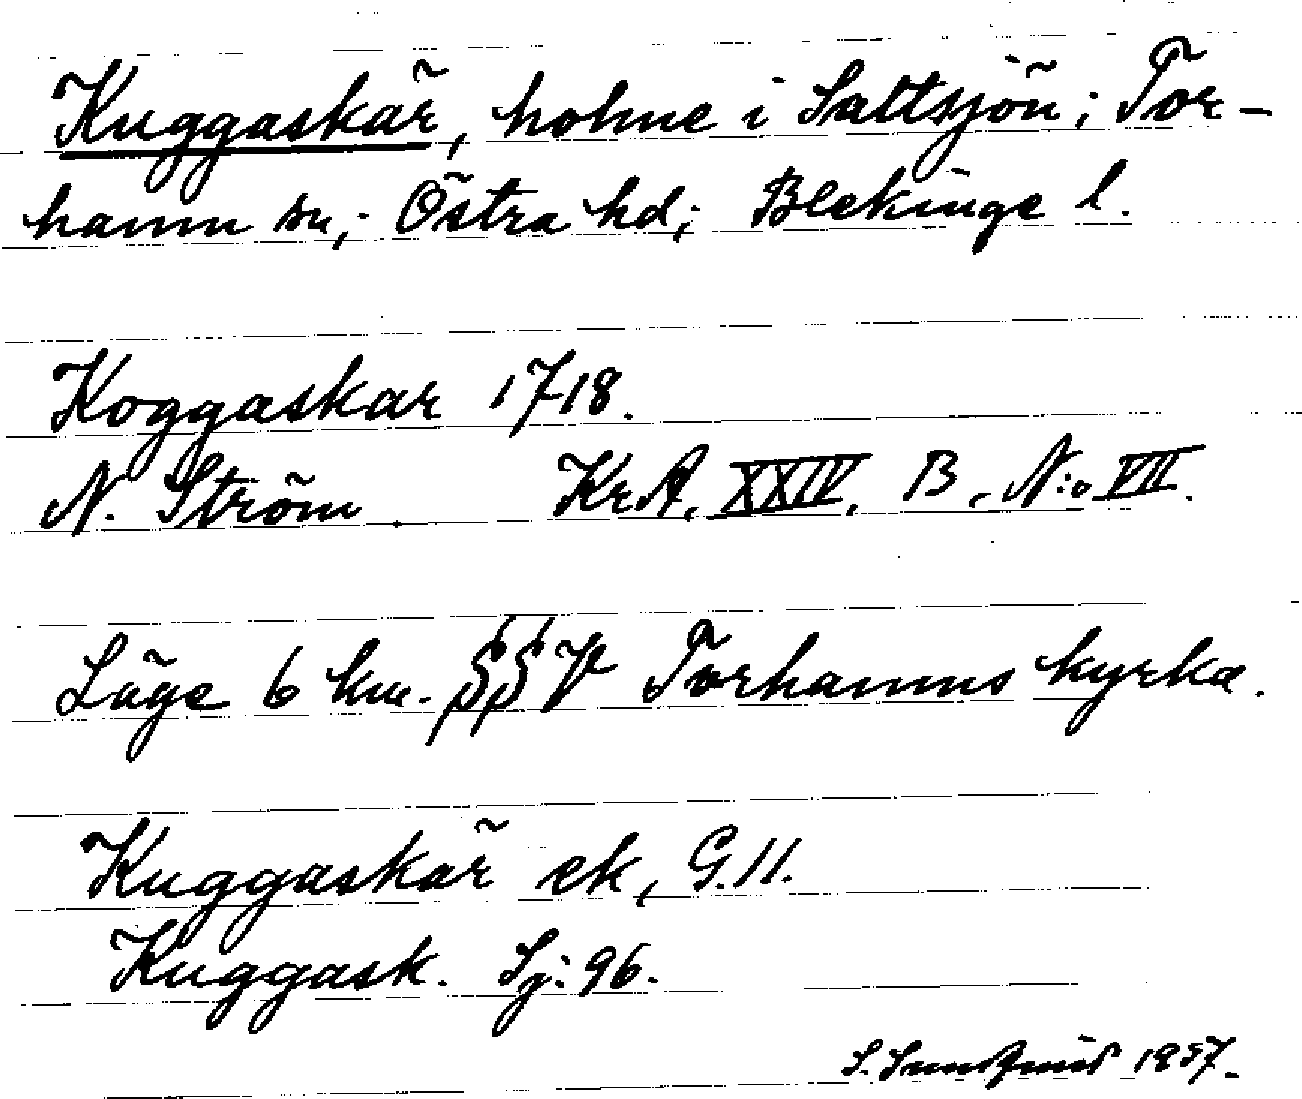 Kuggaskär, holme i Saltsjön; Tor-
hamn sn; Östra hd; Blekinge l.
Koggaskar 1718.
N. Ström. KrA, XXIV, B, N:o VII.
Läge 6 km. SSV Torhamns kyrka.
Kuggaskär ek, G.11.
Kuggask. Sj: 96.
S. 1957.